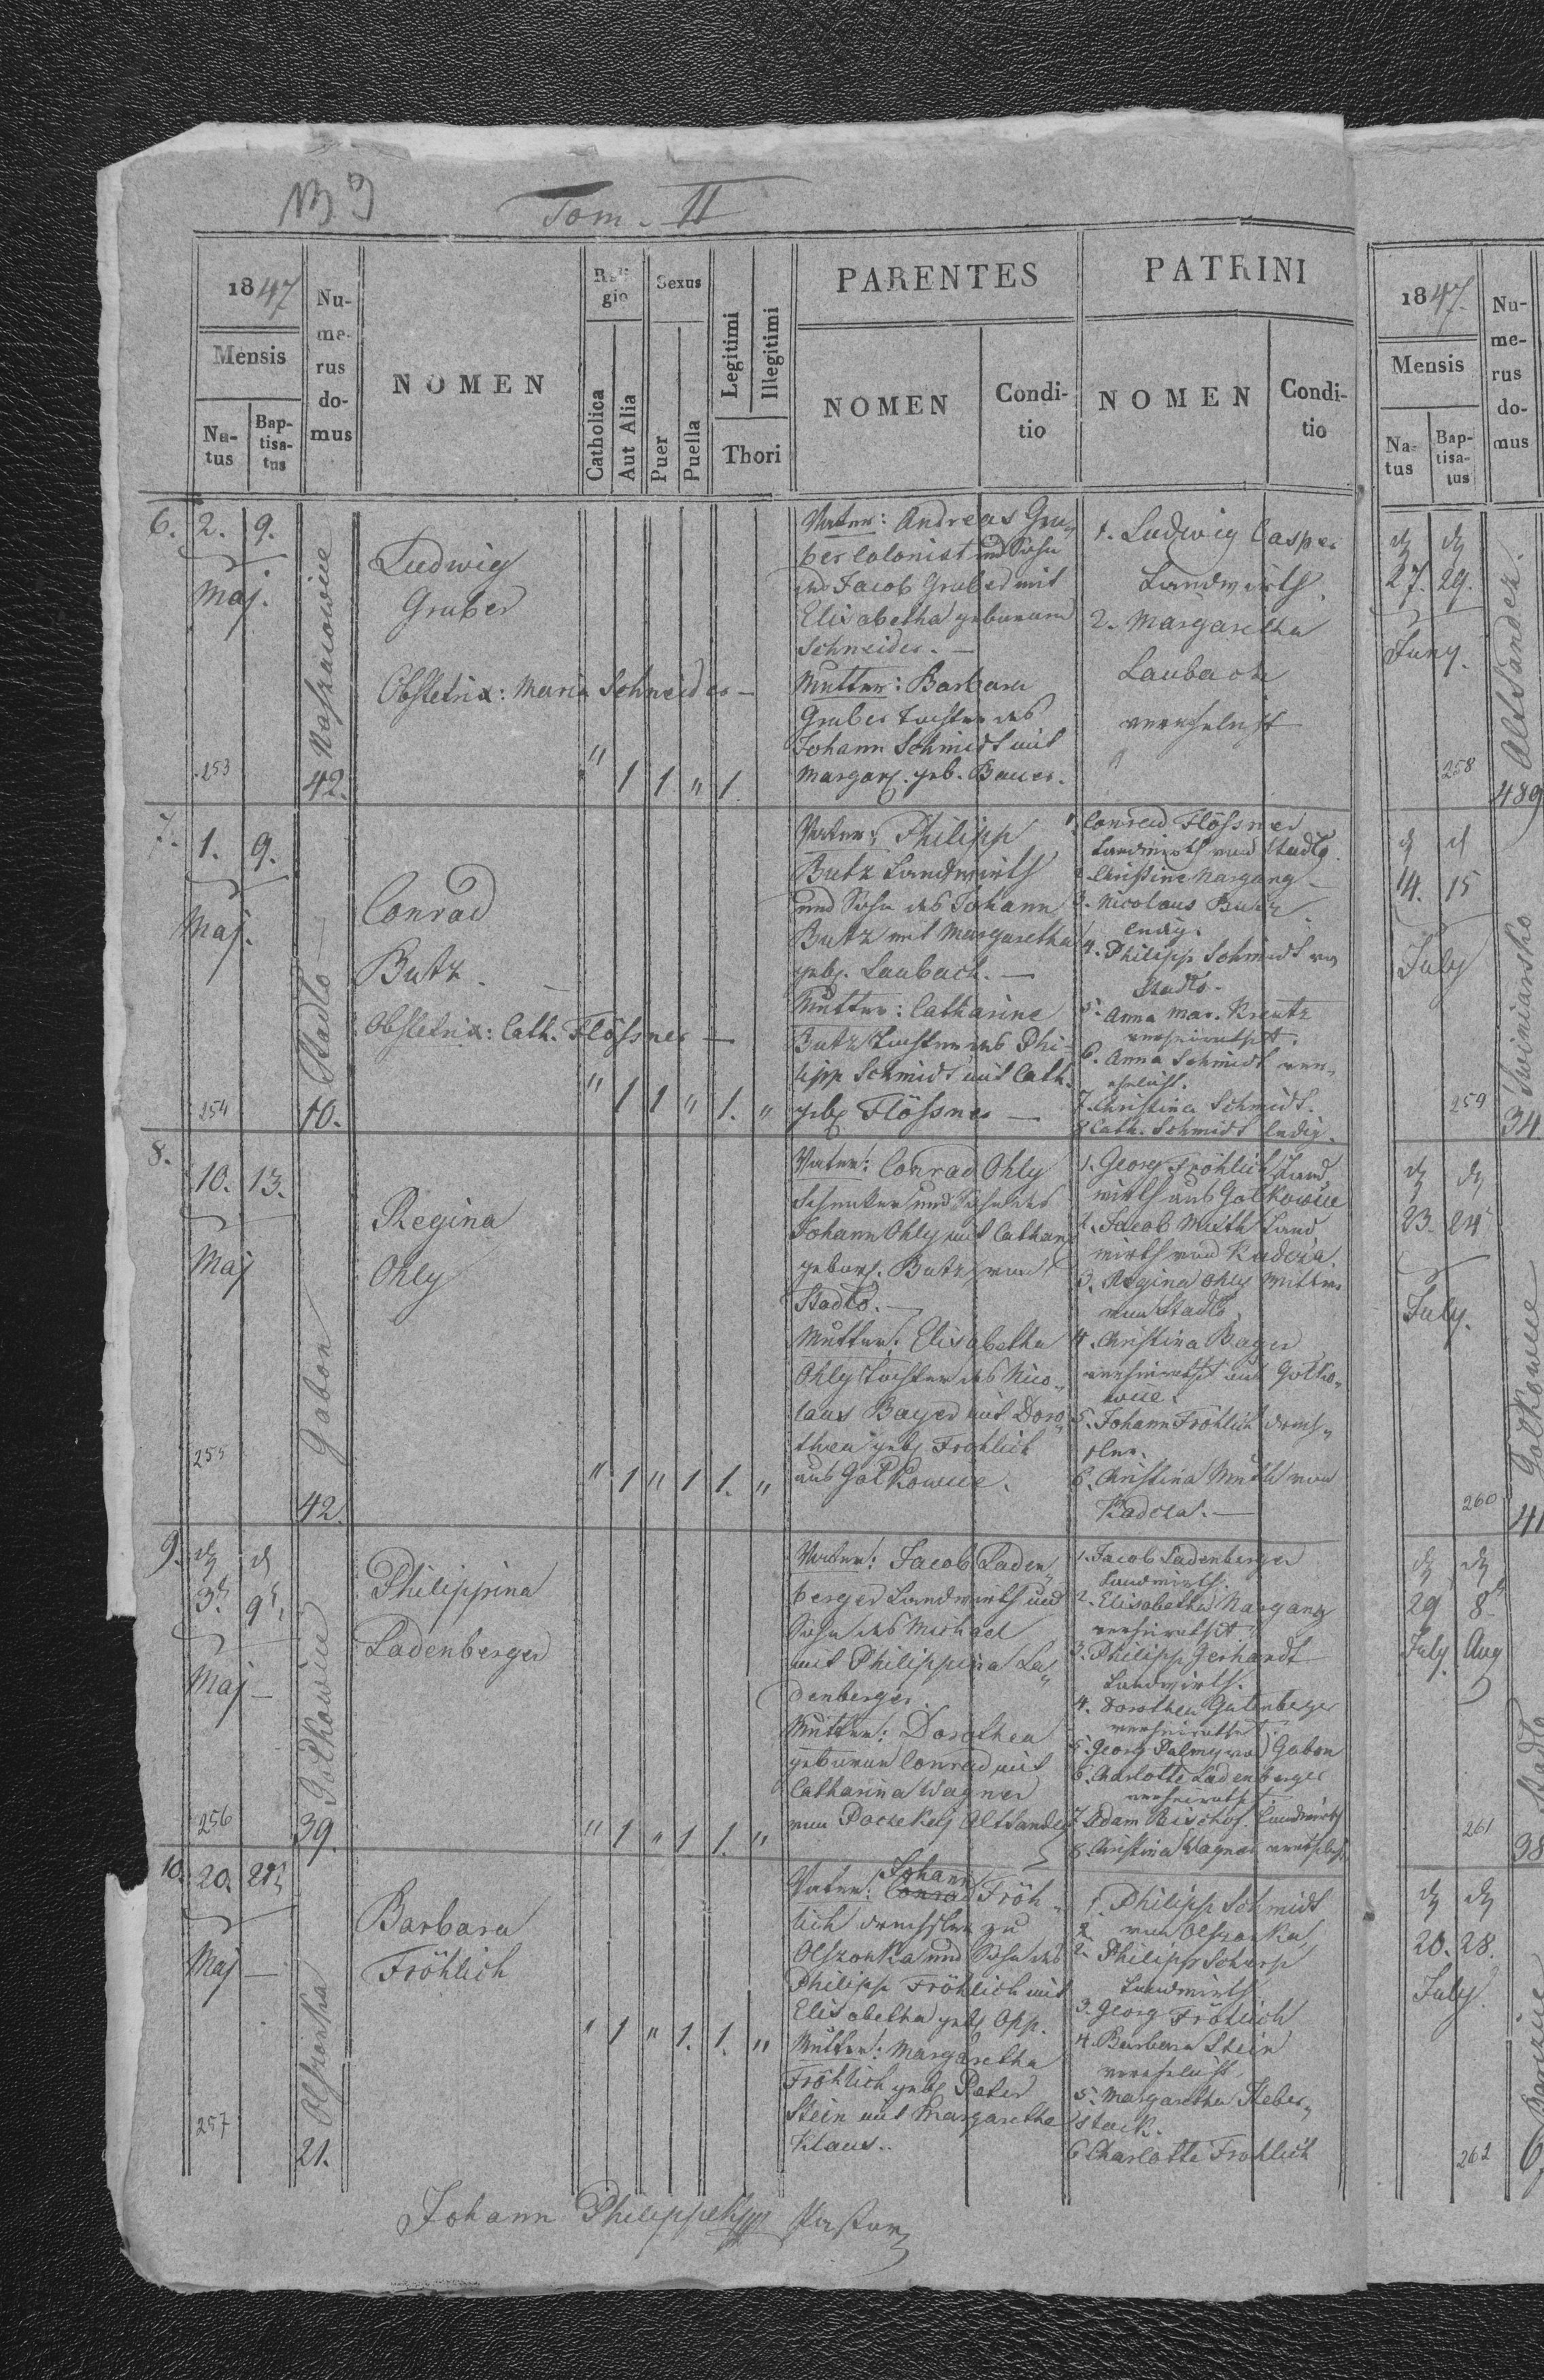 NB 9
Tom. II
1847
Mensis
Na-
tus
Bap-
tisa-
tus
Nu-
me-
rus
do-
mus
NOMEN
Reli-
gio
Catholica
Aut Alia
Sexus
Puer
Puella
Legitimi
Illegitimi
Thori
PARENTES
NOMEN
Condi-
tio
PATRINI
NOMEN
Condi-
tio
6. 2. 9.
Maj.
253
42.
Ludwig
Gruber
Obstetrix: Maria Schneider —
" 1 1 " 1.
Vater: Andreas Gru„
ber Colonist und Sohn
des Jacob Gruber mit
Elisabetha geborene
Schneider. —
Mutter: Barbara
Gruber Tochter des
Johann Schmidt mit
Margar. geb. Bauer.
1. Ludwig Casper
Landwirth.
2. Margaretha
Laubach
verehelicht
7. 1. 9.
Maj.
Stadło
254
10.
Conrad
Butz.
Obstetrix: Cath. Flössner —
" 1 1 " 1. "
Vater: Philipp
Butz Landwirth
und Sohn des Johann
Butz mit Margaretha
geb. Laubach. —
Mutter: Catharine
Butz Tochter des Phi-
lipp Schmidt mit Cath.
geb. Flössner —
1. Conrad Flössner
Landwirth von Stadło.
2. Christine Nargang —
3. Nicolaus Butz
ledig.
4. Philipp Schmidt von
Stadło.
5. Anna Mar. Kreutz
verheirathet.
6. Anna Schmidt ver„
ehelicht.
7. Christina Schmidt.
8. Cath. Schmidt ledig.
8. 10. 13.
Maj
Gabon
255
42.
Regina
Ohly
" 1 " 1 1. "
Vater: Conrad Ohly
und Sohn des
Johann Ohly mit Cathar.
gebor. Butz von
Stadło. —
Mutter: Elisabetha
Ohly Tochter des Nico„
laus Bayer mit Doro„
thea geb. Frohlich
aus Gołkowice.
1. Georg Fröhlich Land
wirth aus Gołkowice
2. Jacob Muth Land
wirth von Kadcza.
3. Regina Ohly Wittwe
von Stadło.
4. Christina Bayer
verheirathet aus Gołko„
wice.
5. Johann Fröhlich Drechs„
ler.
6. Christina Muth von
Kadcza. —
9. d. d.
3t. 9t.
Maj —
Gołkowice
256
39.
Philippina
Ladenberger
" 1 " 1 1. "
Vater: Jacob Laden„
berger Landwirth und
Sohn des Michael
mit Philippina La„
denberger.
Mutter: Dorothea
geborene Conrad mit
Catharina Wagner
1. Jacob Ladenberger
Landwirth.
2. Elisabetha Nargang
verheirathet
3. Philipp Gerhardt
Landwirth.
4. Dorothea Gutenberger
verheirathet.
5. Georg Palmy von Gabon
6. Charlotte Ladenberger
verheirathet
7. Adam Bischof. Landwirth
8. Christina Wagner verehelicht.
10. 20. 21.
Maj —
Olszonka
257
21.
Barbara
Fröhlich
" 1 " 1. 1. "
Vater: Johann Fröh„
lich Drechsler zu
Olszonka und Sohn des
Philipp Fröhlich mit
Elisabetha geb. Opp.
Mutter: Margaretha
Fröhlich geb. Peter
Stein mit Margaretha
Klaus..
1. Philipp Schmidt
von Olszonka,
2. Philipp Scherp
Landwirth.
3. Georg Frölich
4. Barbara Stein
verehelicht.
5. Margaretha Keber„
stock.
6 Charlotte Frohlich
Johann Philippek Pastor
1847.
Mensis
Na-
tus
Bap-
tisa-
tus
Nu-
me-
rus
do-
mus
27. 29.
Juny.
Alt Sandez.
258
489
14. 15
July
Swiniarsko
259
34
23. 24
July.
Gołkowice
260
41
29 8t
July Aug
Stadło
261
38
20. 28.
July.
262